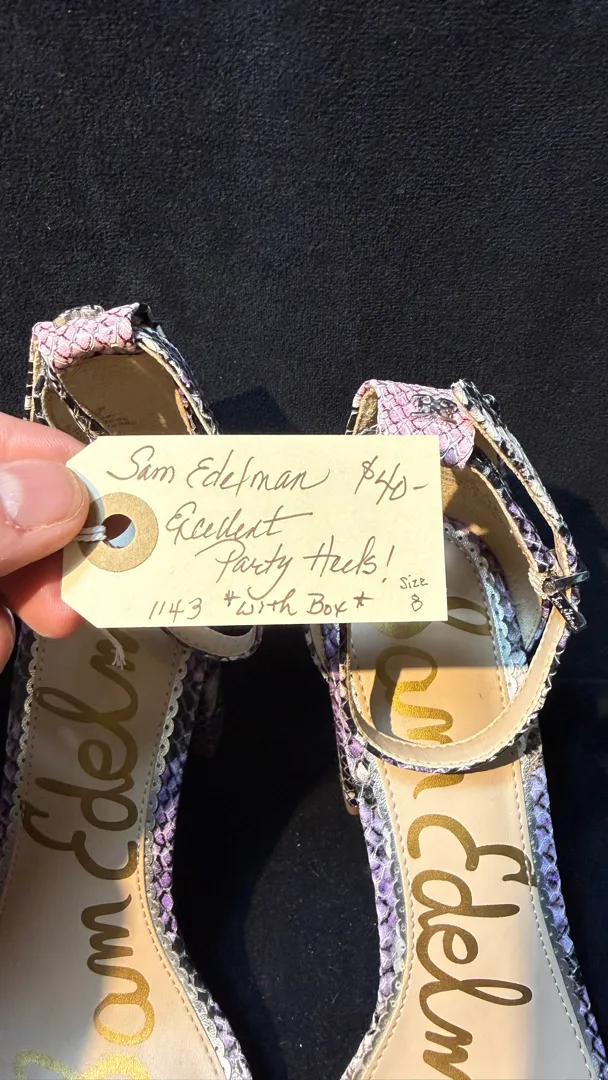 Sam Edelman $40-
Excellent
Party Heels!
1143 *with Box* Size 8
Sam Edelm
Sam Edelm